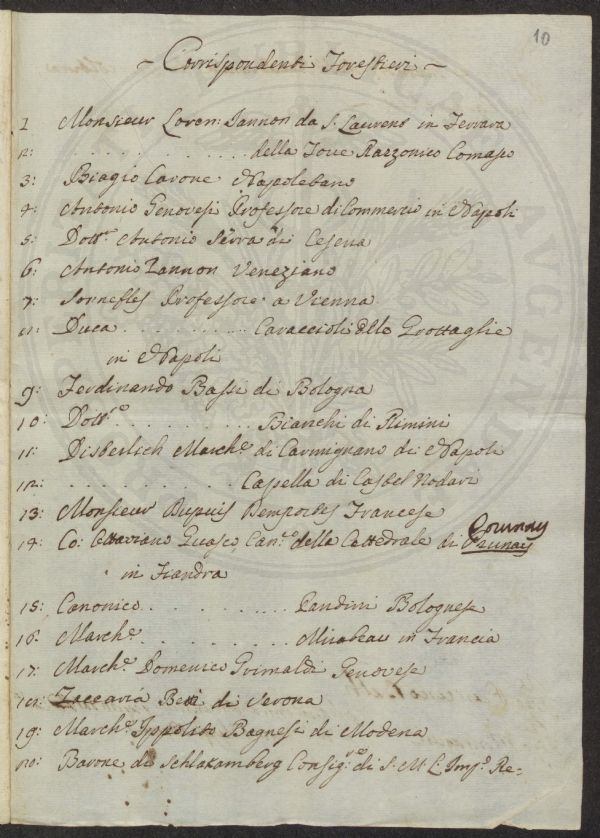 10
~ Corrispondenti Forestieri ~
1 Monsieur Loren: Jannon da S. Laurens in Ferrara
2: . . . . . . . . . . . . . della Torre Razzonico Comasco
3: Biagio Carone Napoletano
4: Antonio Genovesi Professore di Commercio in Napoli
5: Dott.r Antonio Serra di Cesena
6: Antonio Zannon Veneziano
7: Sonnefles Professore a Vienna
8: Duca . . . . . . . . . . Caraccioli delle Grottaglie
in Napoli
9: Ferdinando Bassi di Bologna
10: Dott.e . . . . . . . . . . . Bianchi di Rimini
11: March.e di Carmignano di Napoli
12: . . . . . . . . . . . Capella di Castel
13: Monsieur Dupuis Demportes Francese
14: Co: Ottaviano Guasco Can.co della Cattedrale di Tournay
in Fiandra
15: Canonico . . . . . . . . . . . Bolognese
16: March.e . . . . . . . . . . . Mirabeau in Francia
17: March.e Domenico Grimaldi Genovese
18: Zaccaria Betti di Verona
19: March.e Ippolito Bagnesi di Modena
20: Barone di Consig.re di S. M. I. Imp.e Re-